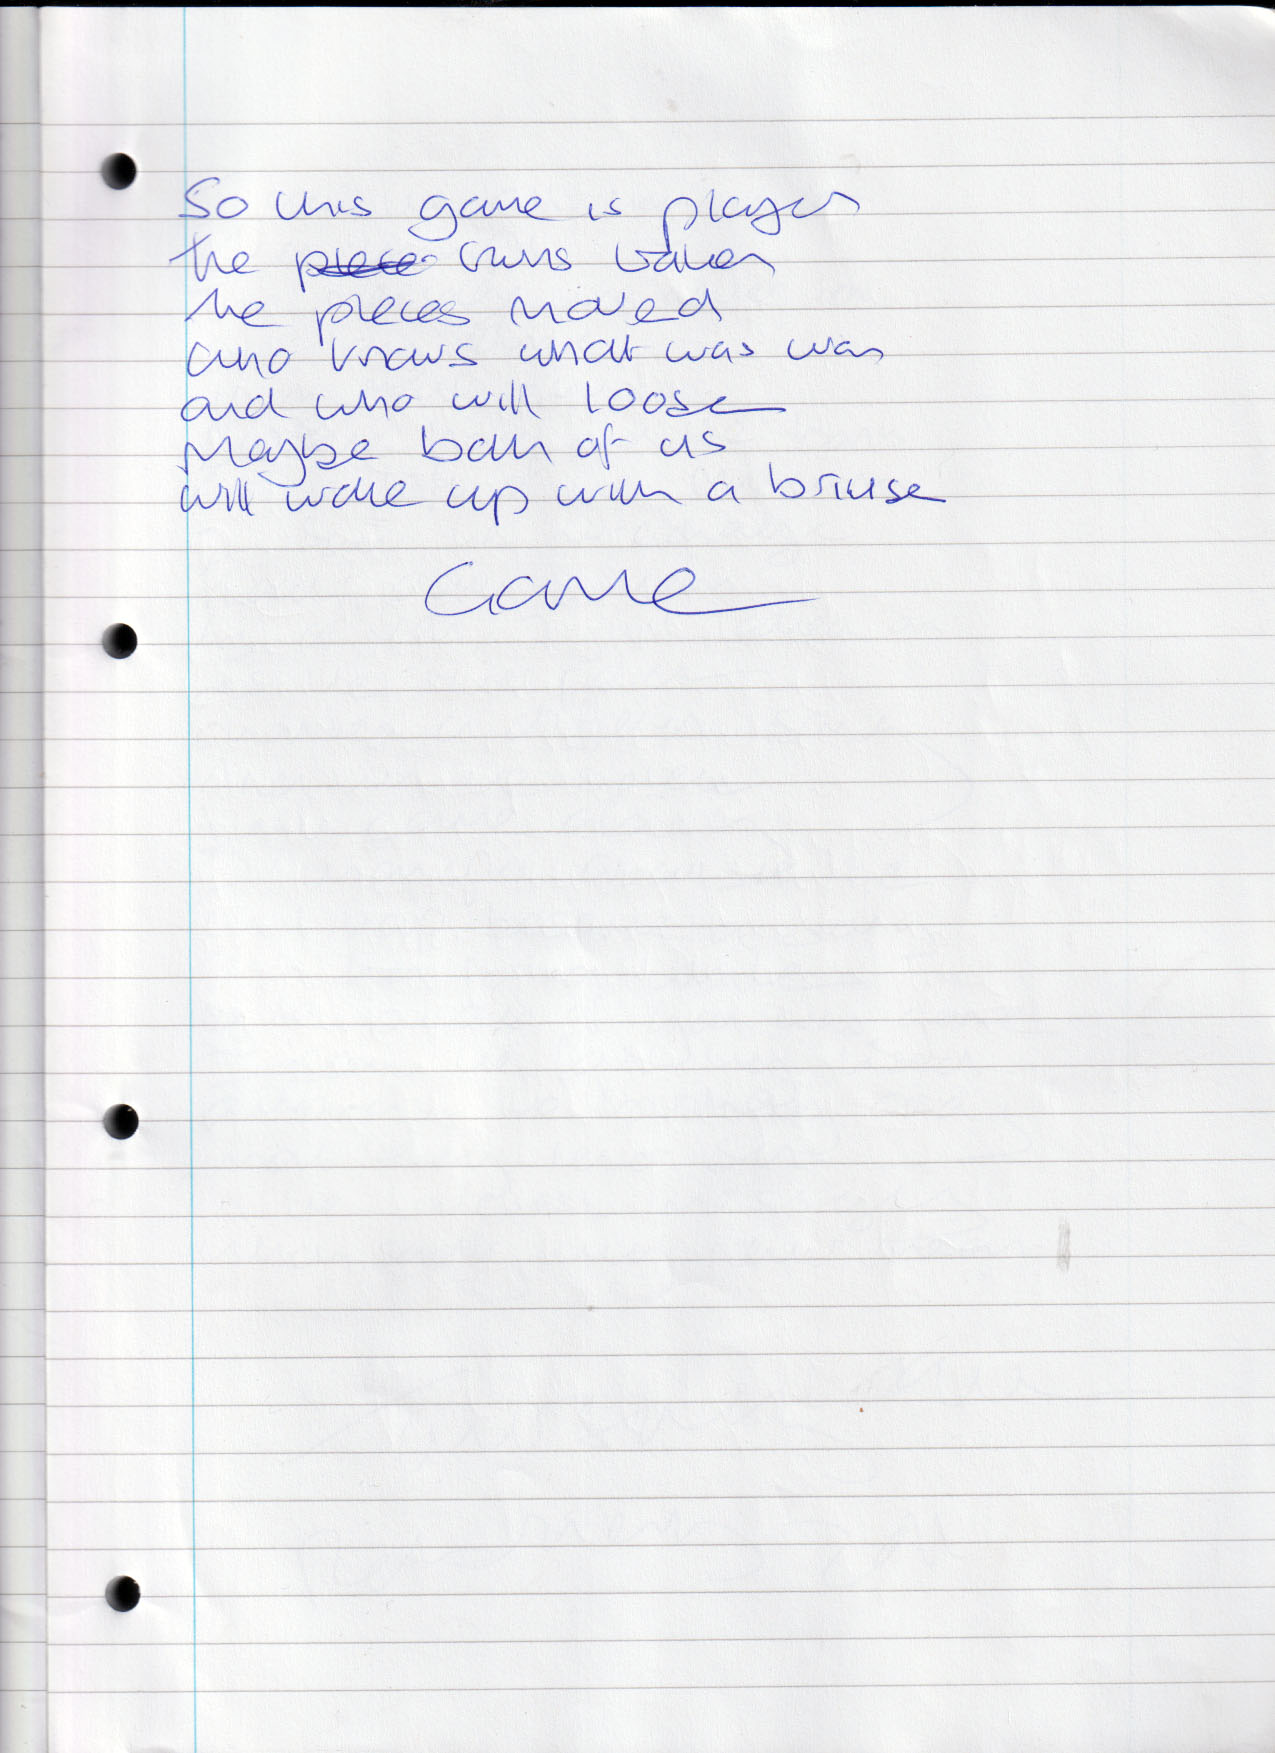 So this game is played
the piece turns taken
the pieces moved
who knows what was was
and who will loose
Maybe both of us
will wake up with a briuse
Game